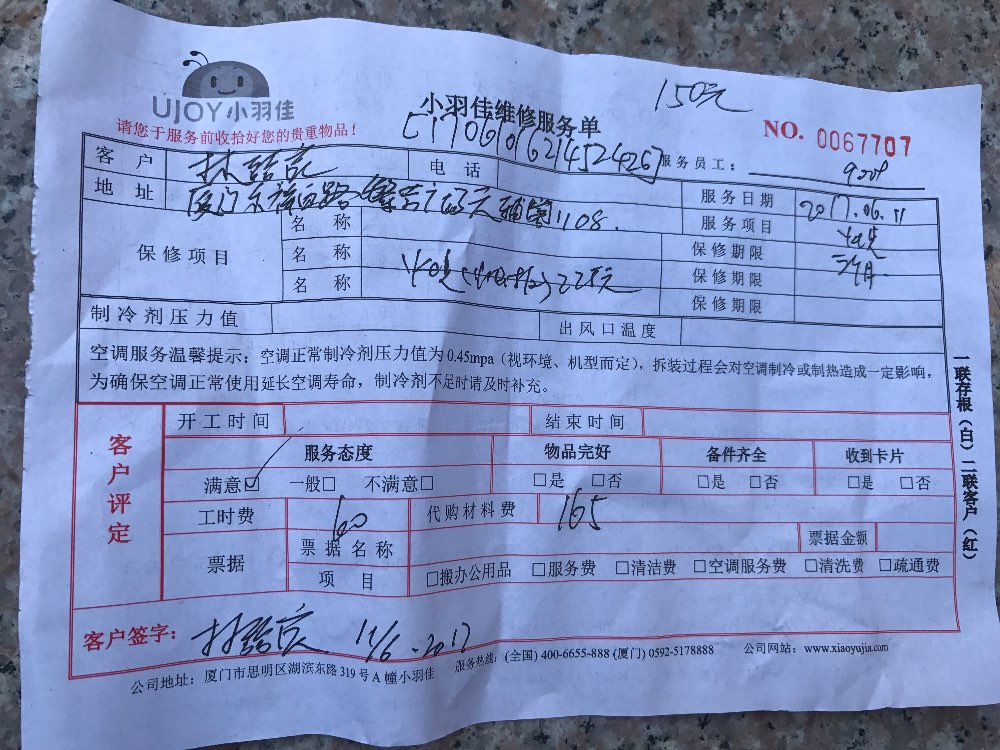 UJOY小羽佳
请您于服务前收拾好您的贵重物品！
小羽佳维修服务单
150元
NO. 0067707
客户 电话 服务员工：
地址 厦门市 1108. 服务日期 2017.06.11
保修项目
名称 服务项目
名称 保修期限 三个月
名称 225元 保修期限
保修期限
制冷剂压力值 出风口温度
空调服务温馨提示：空调正常制冷剂压力值为0.45mpa（视环境、机型而定），拆装过程会对空调制冷或制热造成一定影响，
为确保空调正常使用延长空调寿命，制冷剂不足时请及时补充。
一联存根（白）二联客户（红）
客户评定
开工时间 结束时间
服务态度 物品完好 备件齐全 收到卡片
满意□ 一般□ 不满意□ □是 □否 □是 □否 □是 □否
工时费 60 代购材料费 165
票据 票据名称 票据金额
项目 □搬办公用品 □服务费 □清洁费 □空调服务费 □清洗费 □疏通费
客户签字： 11/6 - 2017
公司地址：厦门市思明区湖滨东路319号A幢小羽佳 服务热线：(全国) 400-6655-888 (厦门) 0592-5178888 公司网站：www.xiaoyujia.com